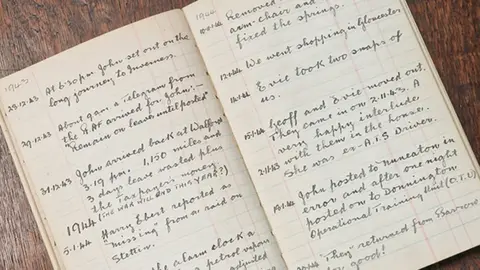 1943
28.12.43 At 6.30pm John set out on the
long journey to Inverness.
29.12.43 About 9am a telegram from
the RAF arrived for John:—
"Remain on leave until posted"
31.12.43 John arrived back at Walford
3.19 p.m. 1,150 miles and
3 days leave wasted plus
the Taxpayer's money.
(THE WAR WILL END THIS YEAR?)
1944
5.1.44 Harry Ebert reported as
"missing" from a raid on
Stettin.
the alarm clock a
petrol vapou
adjusted
1944
Removed
arm-chair and
fixed the springs.
12.1.44 We went shopping in Gloucester
14.1.44 Evie took two snaps of
us.
15.1.44 Geoff and Evie moved out.
They came in on 2.11.43. A
very happy interlude,
with them in the house.
She was ex-A.T.S Driver.
19.1.44 John posted to Nuneaton in
error and after one night
posted on to Donnington
Operational Training Unit (O.T.U)
"They" returned from
for good!